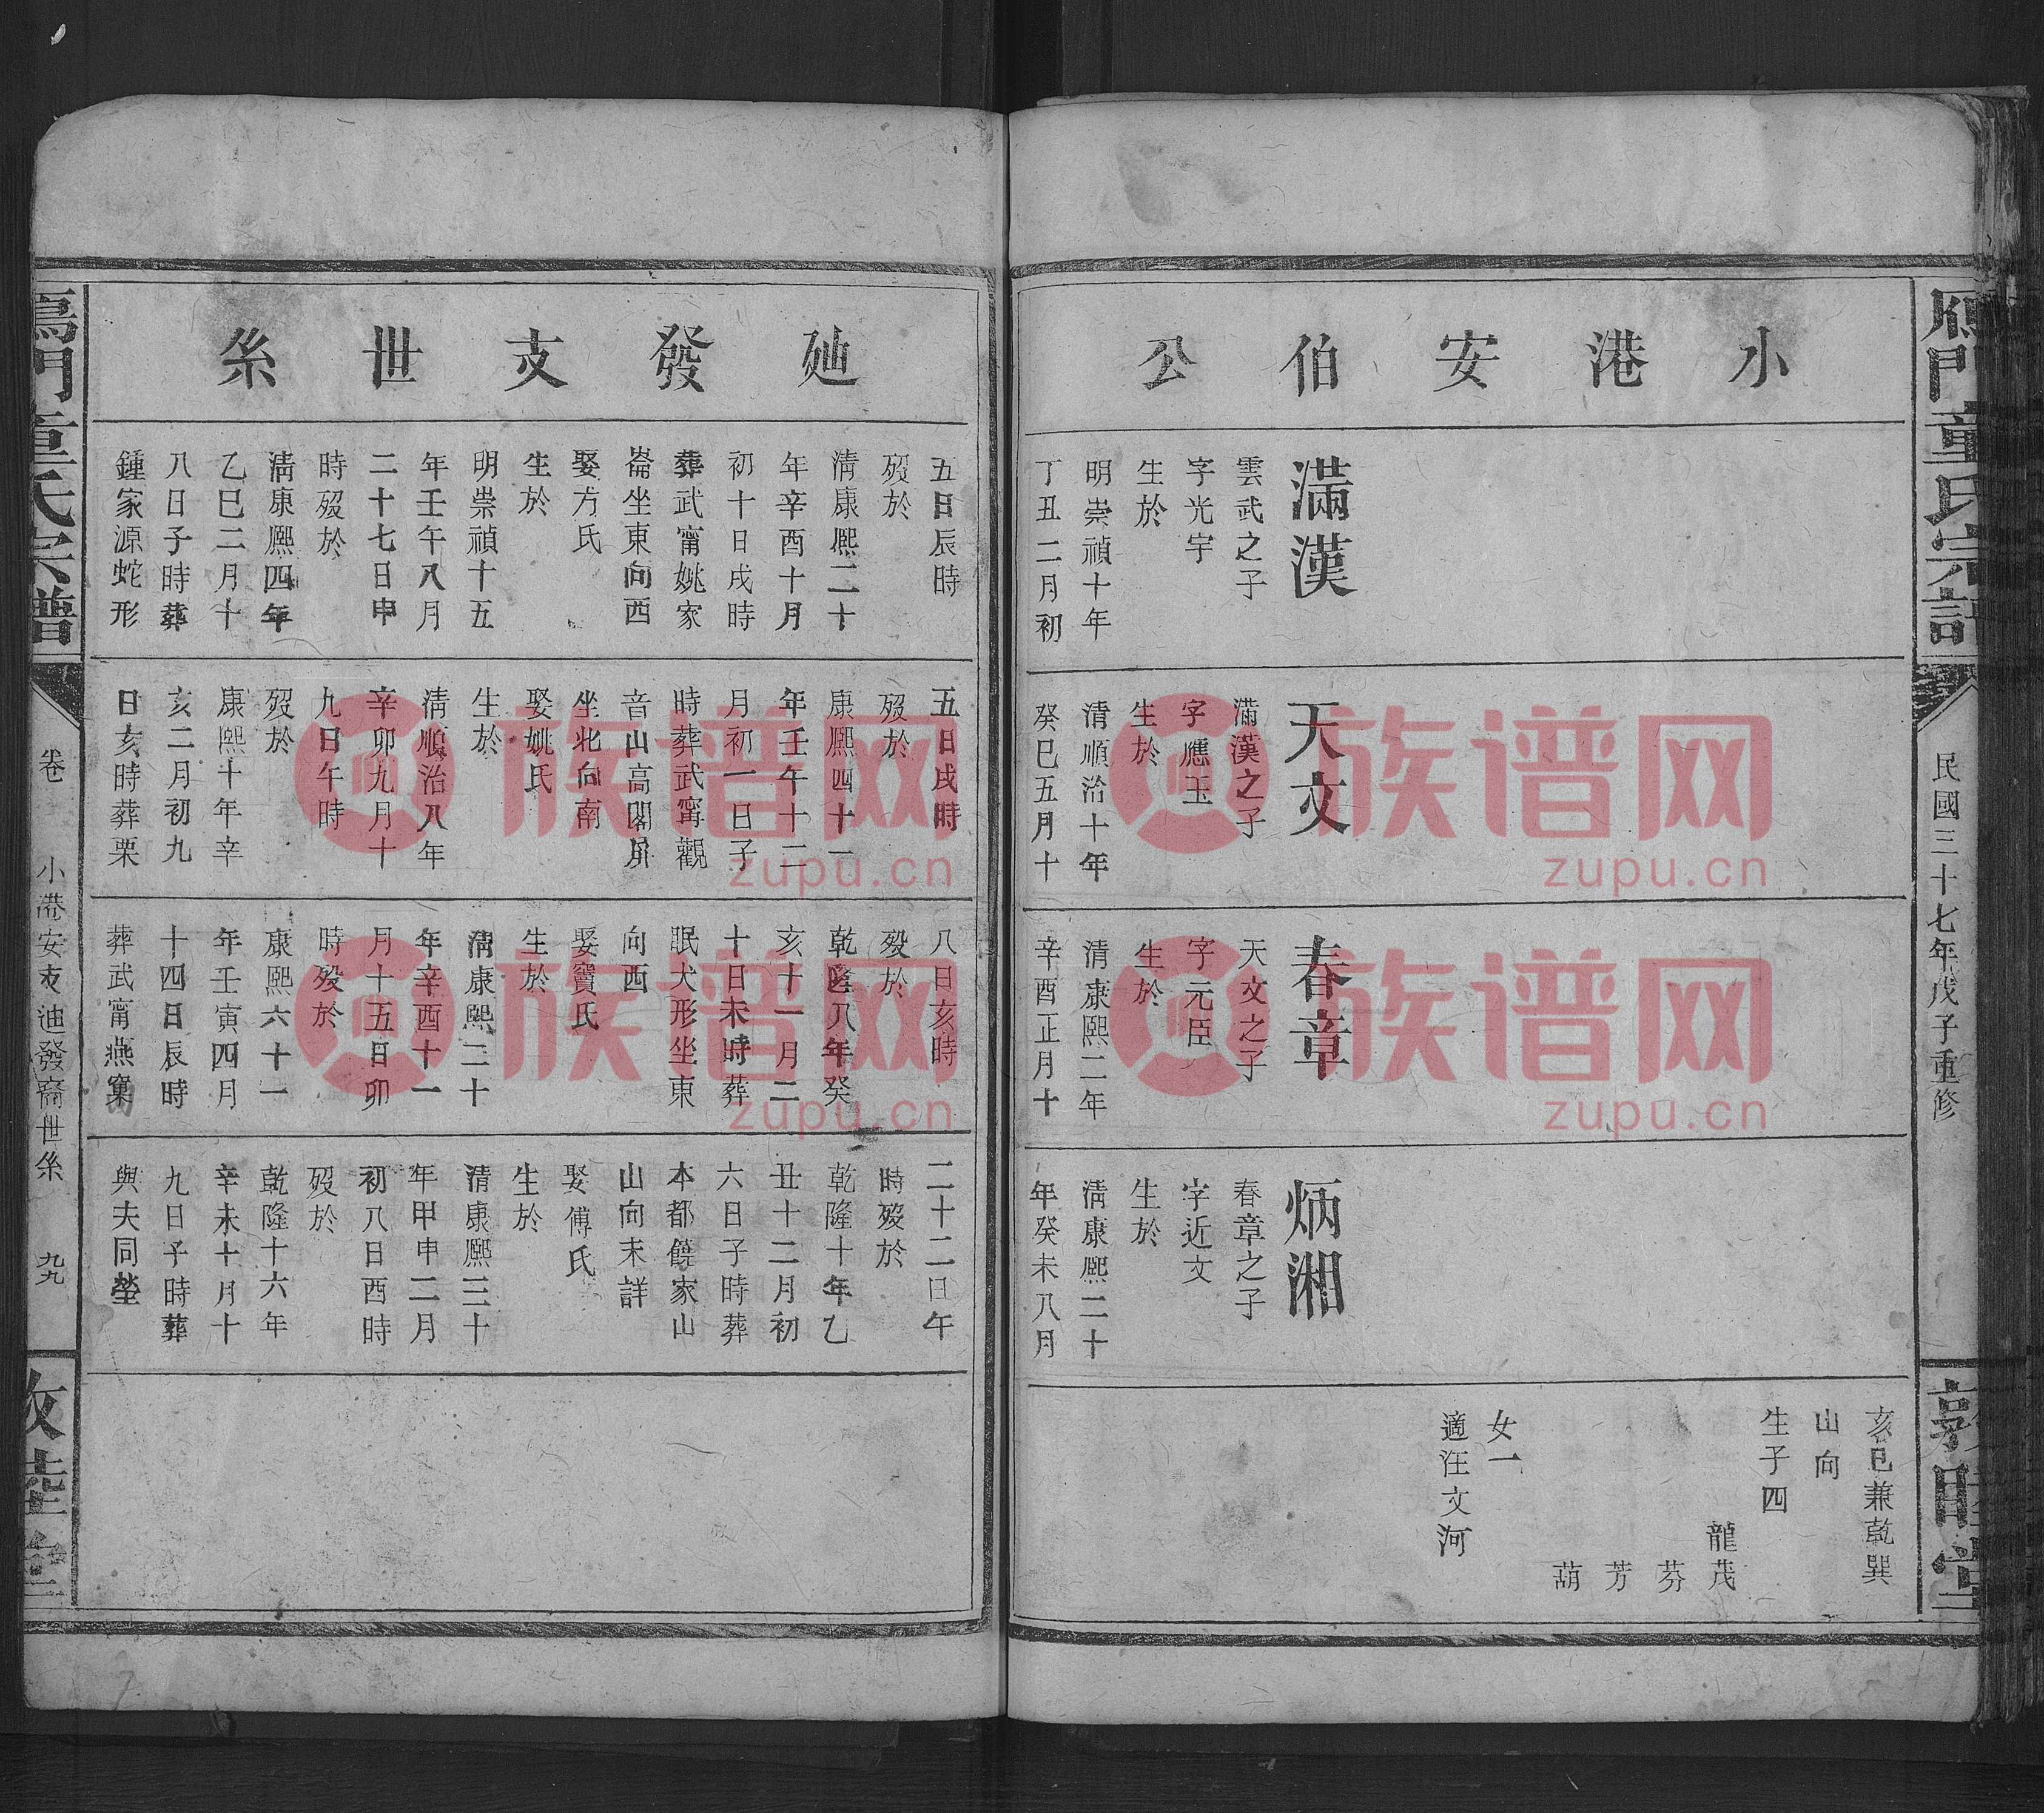 雁門童氏宗譜
民國三十七年戊子重修
敦睦堂
小港安伯公
滿漢
雲武之子
字光宇
生於
明崇禎十年
丁丑二月初
天文
滿漢之子
字應玉
生於
清順治十年
癸巳五月十
春章
天文之子
字元臣
生於
清康熙二年
辛酉正月十
炳湘
春章之子
字近文
生於
清康熙二十
年癸未八月
亥巳兼乾巽
山向
生子四
龍茂
芬
芳
葫
女一
適汪文河
發支世系
五日辰時
歿於
清康熙二十
年辛酉十月
初十日戌時
葬武甯姚家
崙坐東向西
娶方氏
生於
明崇禎十五
年壬午八月
二十七日申
時歿於
清康熙四年
乙巳二月十
八日子時葬
鍾家源蛇形
五日戌時
歿於
康熙四十一
年壬午十二
月初一日子
時葬武甯觀
音山高閣
坐北向南
娶姚氏
生於
清順治八年
辛卯九月十
九日午時
歿於
康熙十年辛
亥二月初九
日亥時葬栗
八日亥時
歿於
乾隆八年癸
亥十一月二
十日未時葬
眠犬形坐東
向西
娶竇氏
生於
清康熙二十
年辛酉十一
月十五日卯
時歿於
康熙六十一
年壬寅四月
十四日辰時
葬武甯燕窠
二十二日午
時歿於
乾隆十年乙
丑十二月初
六日子時葬
本都饒家山
山向未詳
娶傅氏
生於
清康熙三十
年甲申二月
初八日酉時
歿於
乾隆十六年
辛未十月十
九日子時葬
與夫同塋
雁門童氏宗譜
卷
小港安支迪發裔世系
九九
敦睦堂
族谱网
zupu.cn
族谱网
zupu.cn
族谱网
zupu.cn
族谱网
zupu.cn